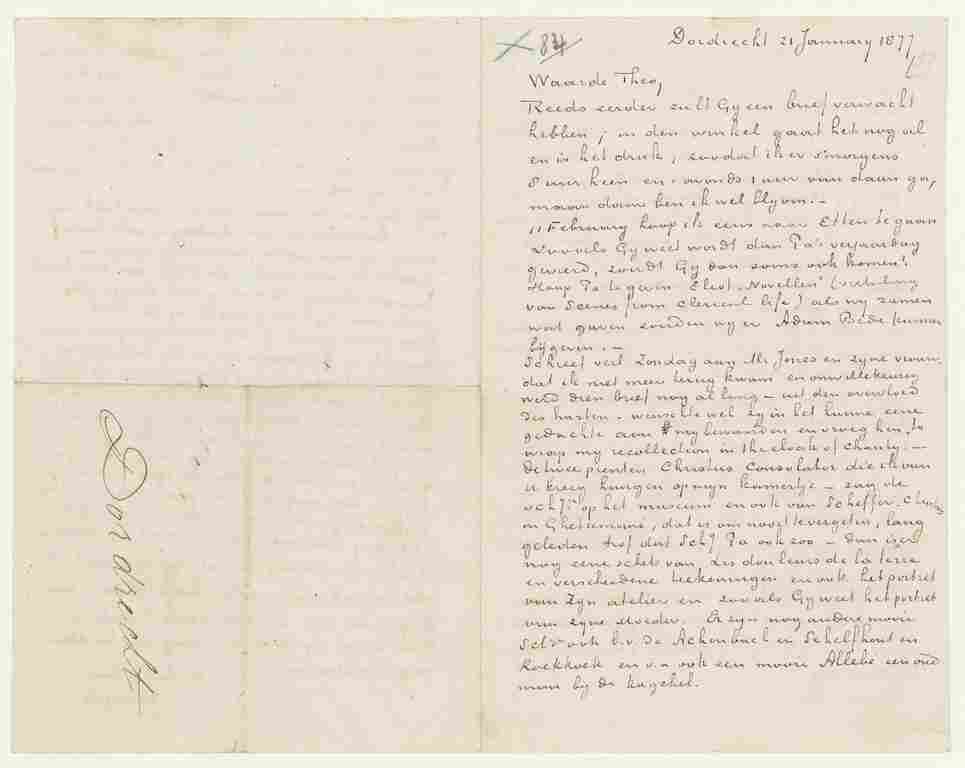 84
Dordrecht 21 January 1877
Waarde Theo,
Reeds eerder sult Gy een brief verwacht
hebben; in den winkel gaat het nog al
en is het druk, zoodat ik er s'morgens
8 uur heen en s'avonds 1 uur van daan ga,
maar daar ben ik wel bly om. -
11 February hoop ik eens naar Etten te gaan
Zooals Gy weet wordt dan Pa's verjaardag
gevierd, zoudt Gy dan soms ook komen?
Hoop Pa te geven Eliot „Novellen" (vertaling
van Scenes from clerical life) als wy zamen
wat gaven zouden wy er Adam Bede kunnen
bijgeven. -
Schreef verl. Zondag aan Mr Jones en zyne vrouw
dat ik niet meer terug kwam en onwillekeurig
werd dien brief nog al lang - uit den overvloed
des harten - wenschte wel zy in het hunne eene
gedachte aan my bewaarden en vroeg hen „to
wrap my recollection in the cloak of charity. -
De twee prenten Christus Consolator die ik van
U kreeg hangen op myn kamertje - zag de
schn op het museum en ook van Scheffer Christus
in Ghetsemané, dat is om nooit te vergeten, lang
geleden trof dat Sch. Pa ook zoo - dan is er
nog eene schets van, Les douleurs de la terre
en verscheidene teekeningen en ook het portret
van Zyn atelier en zooals Gy weet het portret
van zyne Moeder. Er zyn nog andere mooie
Schn ook b.v. de Achenbach en Schelfhout en
Koekkoek en o.a. ook een mooie Allebe een oud
man by de kagchel.
Dordrecht